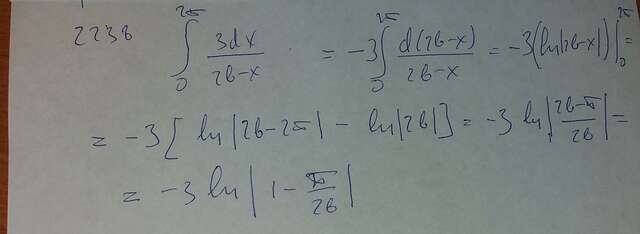 2238 ∫₀^{2π} 3dx/(2b-x) = -3∫₀^{2π} d(2b-x)/(2b-x) = -3(ln|2b-x|)|₀^{2π} =
= -3[ln|2b-2π| - ln|2b|] = -3 ln|(2b-π)/2b| =
= -3 ln|1 - π/2b|